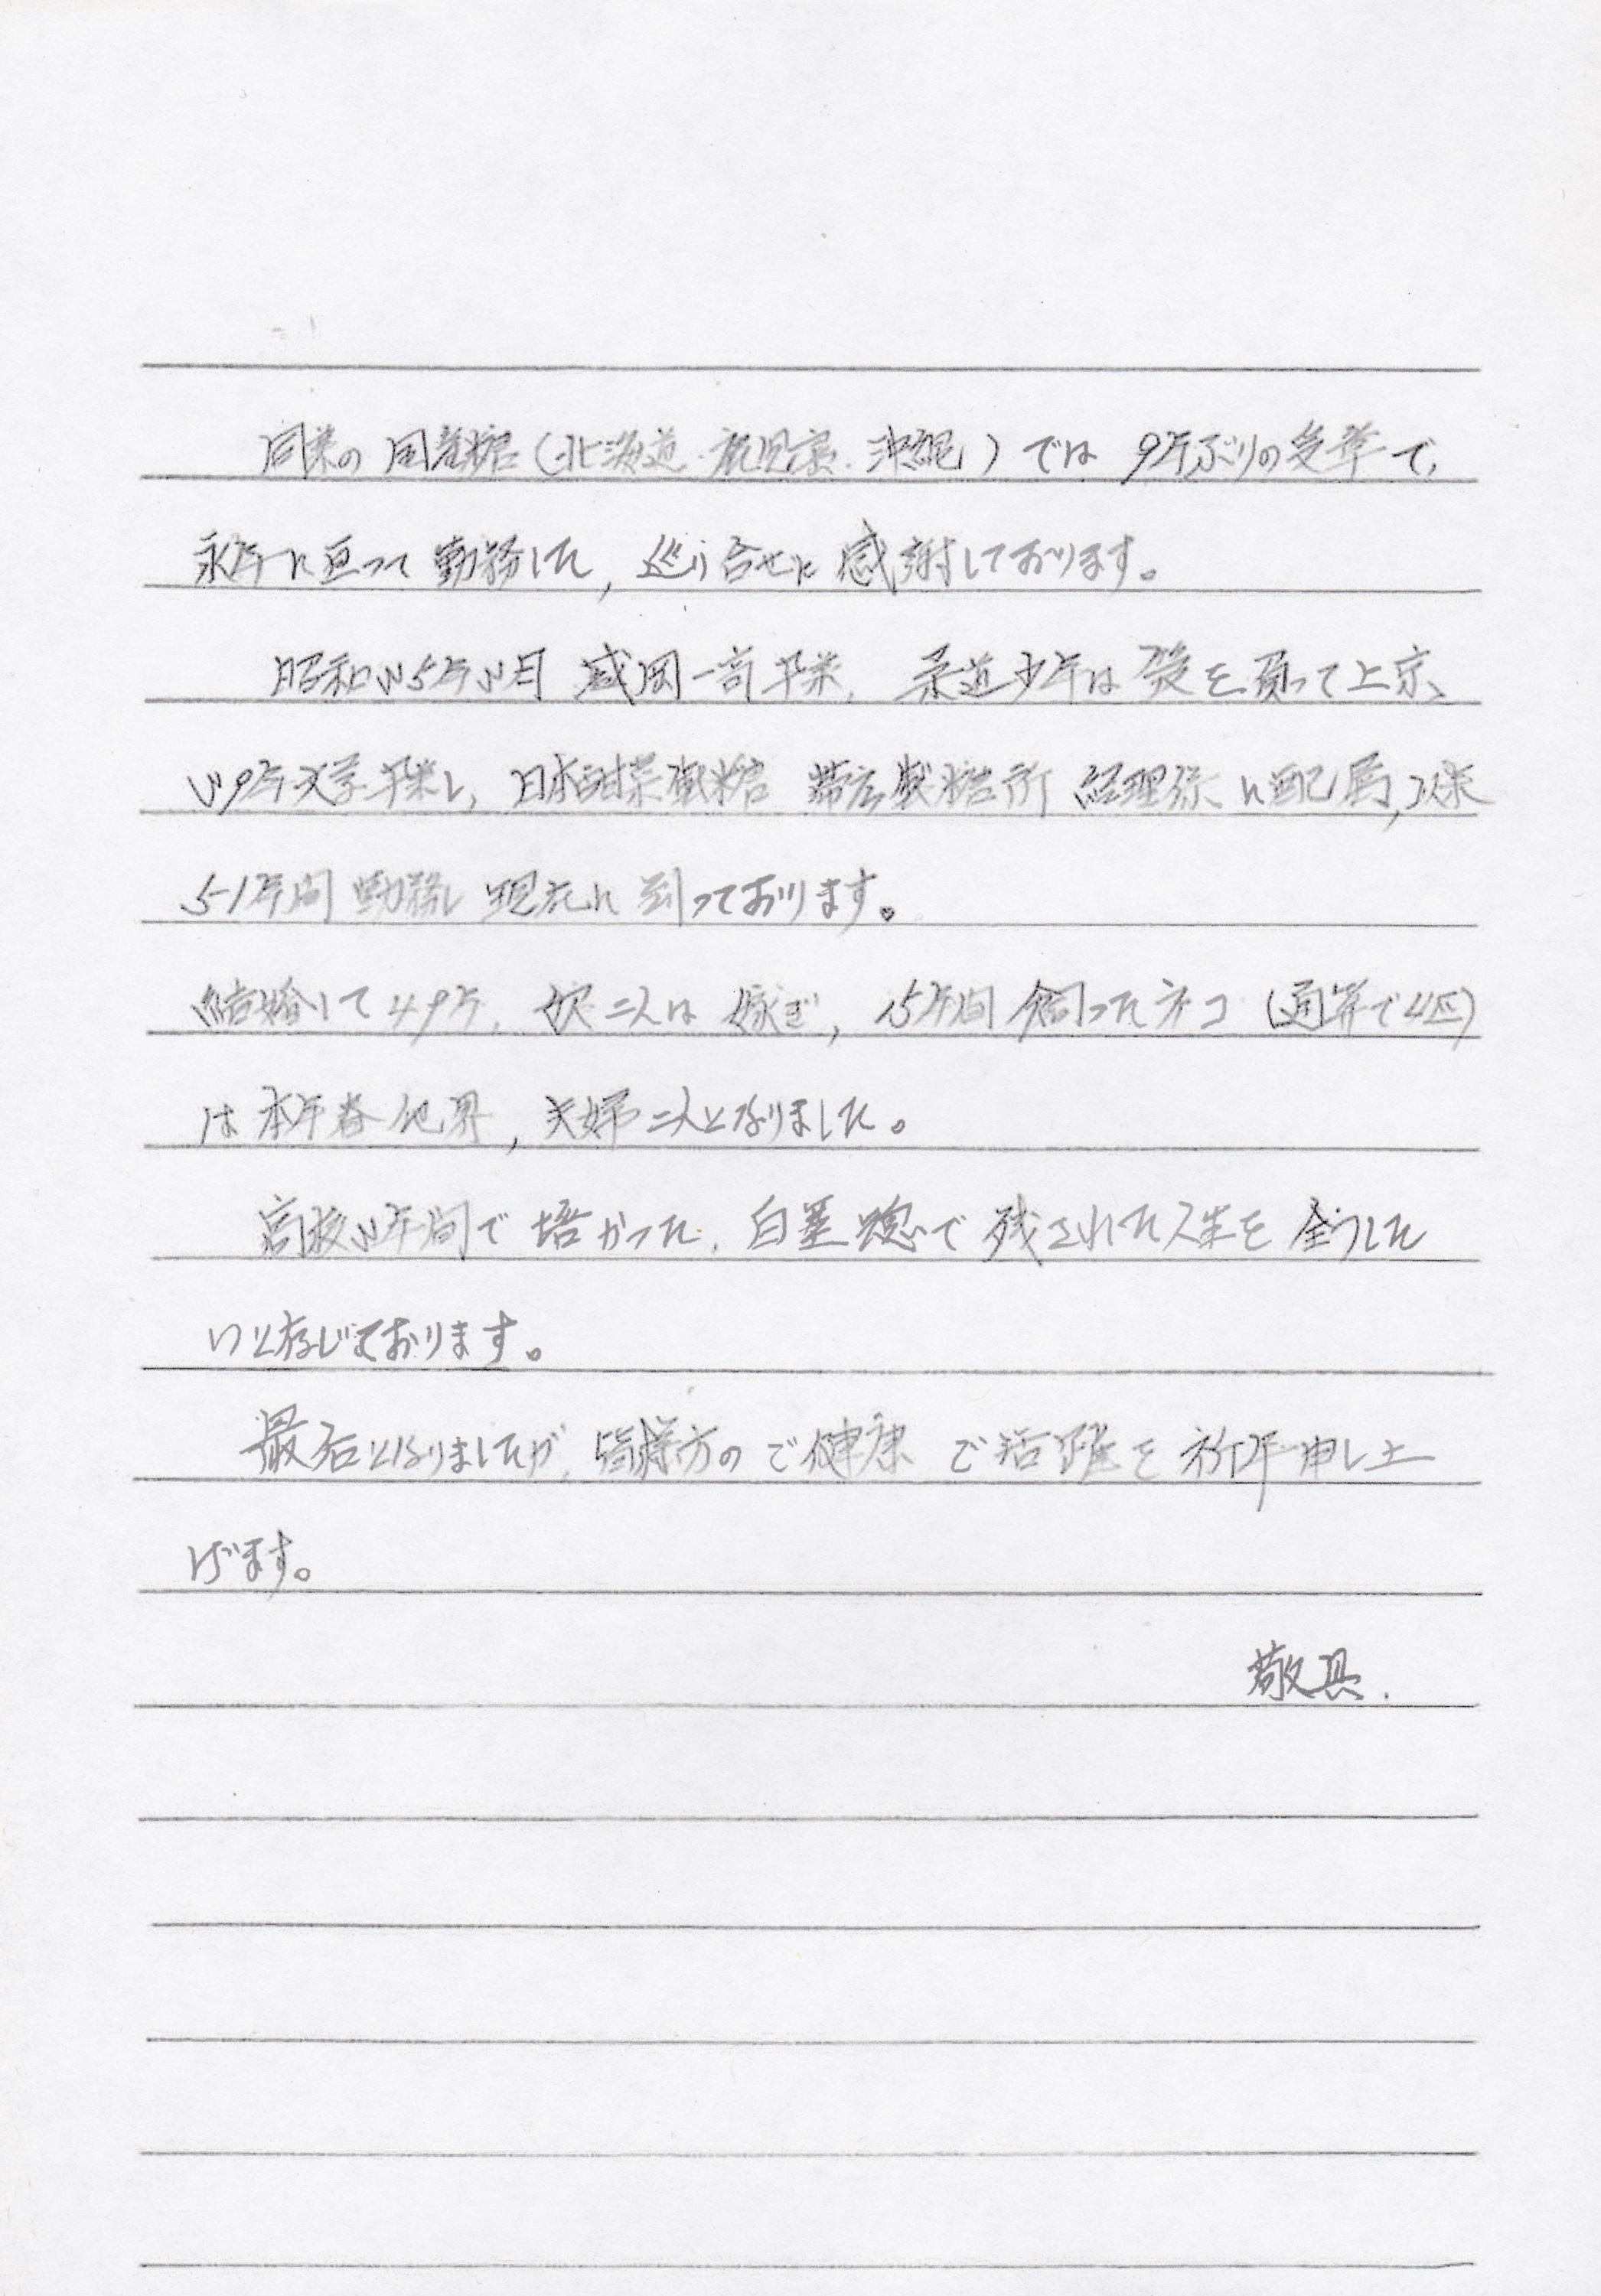 同業の国産糖(北海道・鹿児島・沖縄)では9年ぶりの受章で、
永年に亘って勤務した,巡り合せに感謝しております。
昭和45年3月盛岡一高卒業,柔道少年は笈を負って上京、
49年大学卒業し、日本甜菜製糖 帯広製糖所 経理係に配属,以来
51年間勤務し現在に到っております。
結婚して49年,娘二人は嫁ぎ,15年間飼ったネコ(通算で4匹)
は本年春他界,夫婦二人となりました。
高校3年間で培かった,白堊魂で残された人生を全うした
いと存じております。
最后となりましたが,皆様方のご健康 ご活躍を祈年申し上
げます。
敬具.